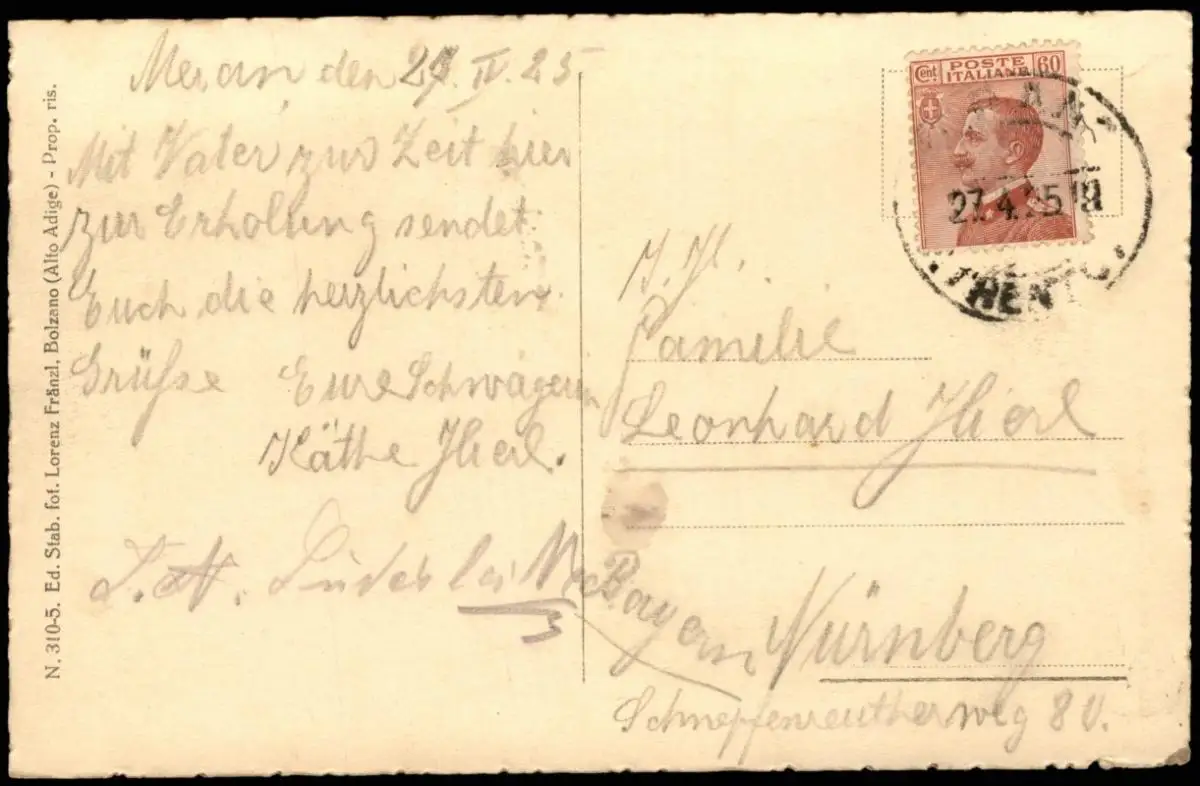 N. 310-5. Ed. Stab. fot. Lorenz Fränzl, Bolzano (Alto Adige) - Prop. ris.
Meran, den 27. IV. 25
Mit Vater zur Zeit hier
zur Erholung sendet
Euch die herzlichsten
Grüße Eure Schwägerin
Käthe Hierl.
Cent POSTE ITALIANE 60
27.4.25.19
TRENTO
Familie
Leonhard Hierl
Bayern Nürnberg
Schnepfenreutherweg 8 II.